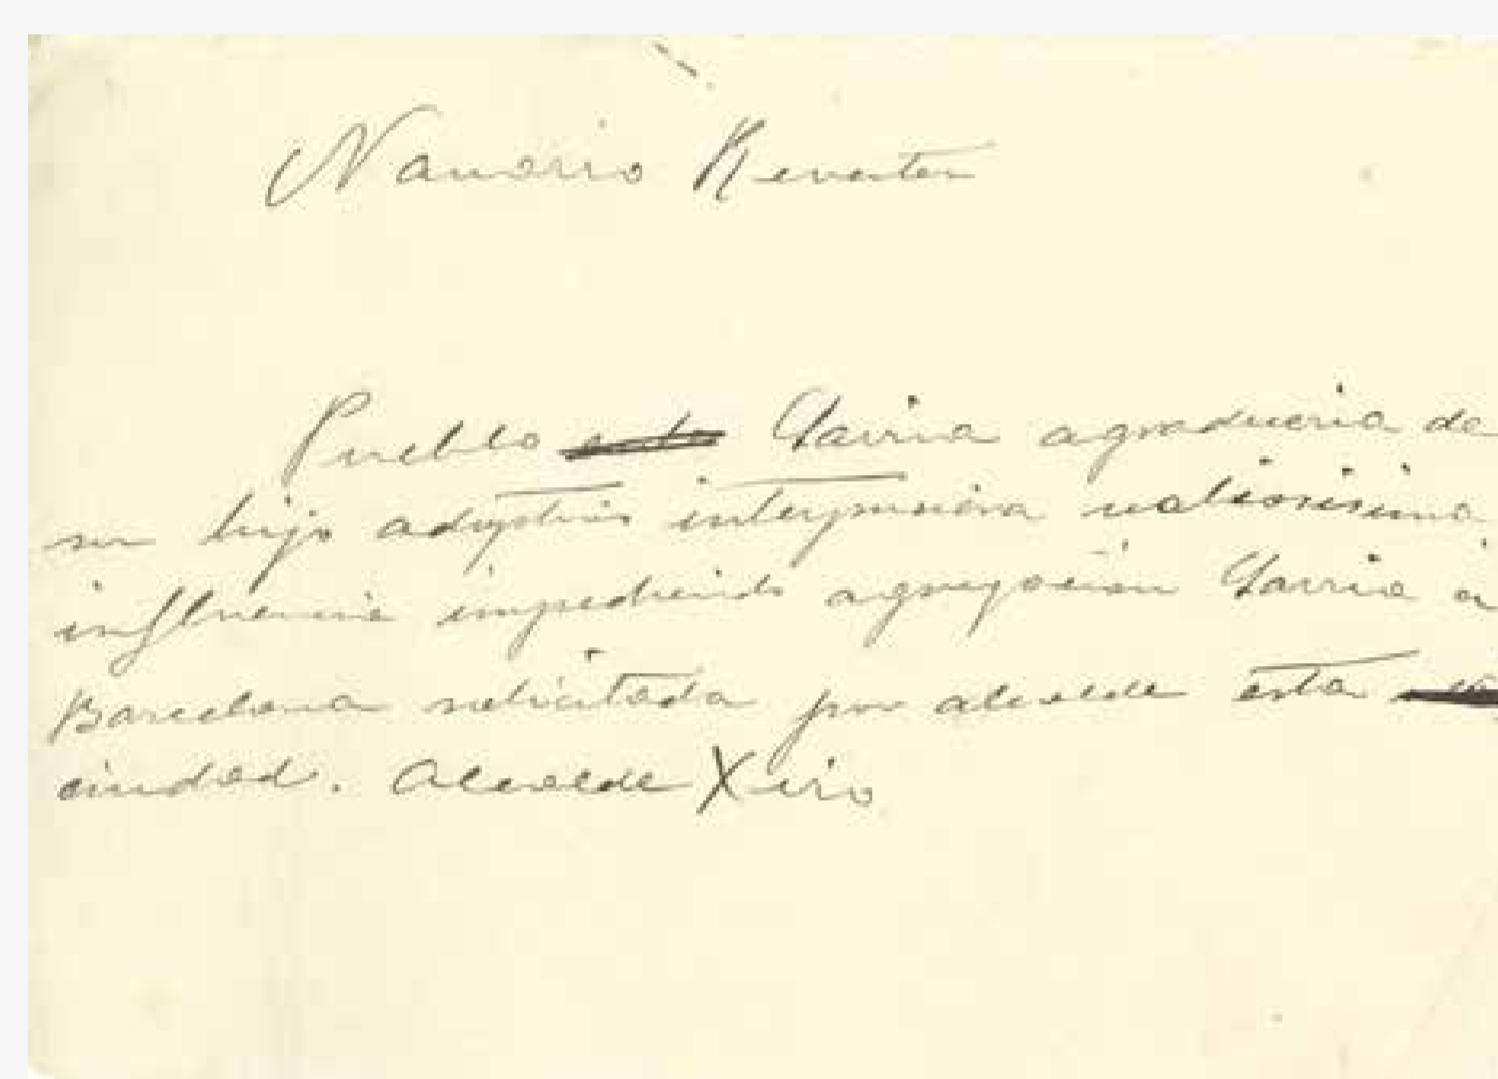 Navarro Reverter
Pueblo Sarria agradeceria de
su hijo adoptivo interpusiera valiosisima
influencia impidiendo agregación Sarria á
Barcelona solicitada por alcalde esta
ciudad. Alcalde Xiro